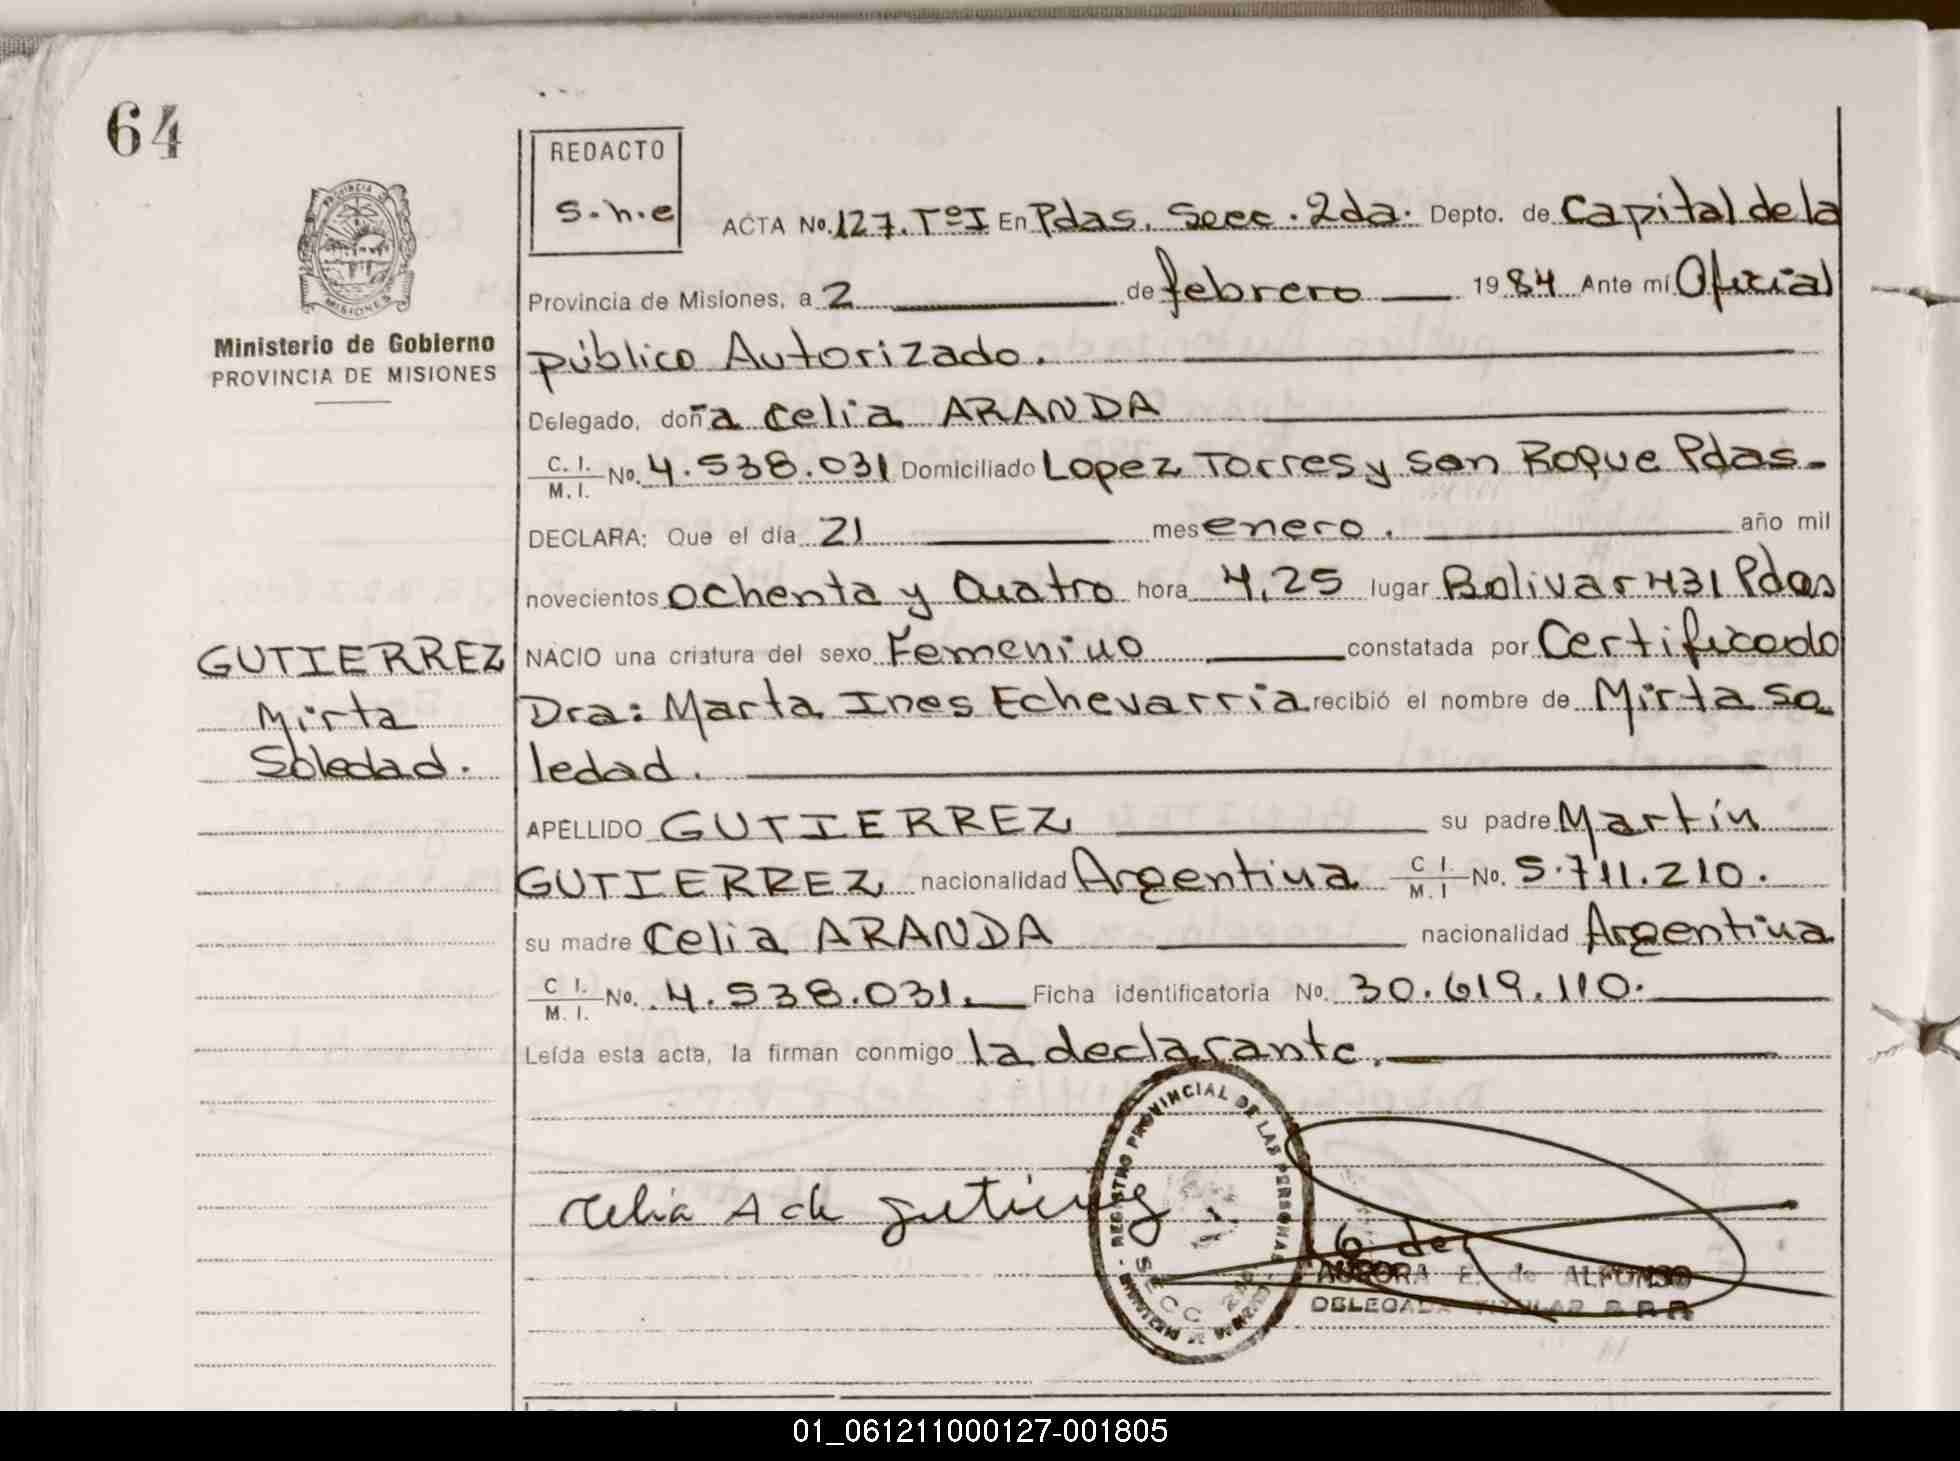 64
PROVINCIA
MISIONES
Ministerio de Gobierno
PROVINCIA DE MISIONES
REDACTO
S.h.e
ACTA No. 127. TºI En Pdas. Secc. 2da. Depto. de Capital de la
Provincia de Misiones, a 2 de febrero 1984 Ante mí Oficial
público Autorizado.
Delegado, doña Celia ARANDA
C. I. M. I. No. 4.538.031 Domiciliado Lopez Torres y San Roque Pdas.
DECLARA: Que el día 21 mes enero. año mil
novecientos ochenta y Cuatro hora 4,25 lugar Bolivar 431 Pdas
NACIO una criatura del sexo Femenino constatada por Certificado
Dra: Marta Ines Echevarria recibió el nombre de Mirta So
ledad.
GUTIERREZ
Mirta
Soledad.
APELLIDO GUTIERREZ su padre Martín
GUTIERREZ nacionalidad Argentina C I. M. I No. 5.711.210.
su madre Celia ARANDA nacionalidad Argentina
C I. M. I. No. 4.538.031. Ficha identificatoria No. 30.619.110.
Leída esta acta, la firman conmigo la declarante.
REGISTRO PROVINCIAL DE LAS PERSONAS
SECC. 2da
Celia A de Gutierrez
AURORA E. de ALFONSO
DELEGADA TITULAR R.P.P.
01_061211000127-001805